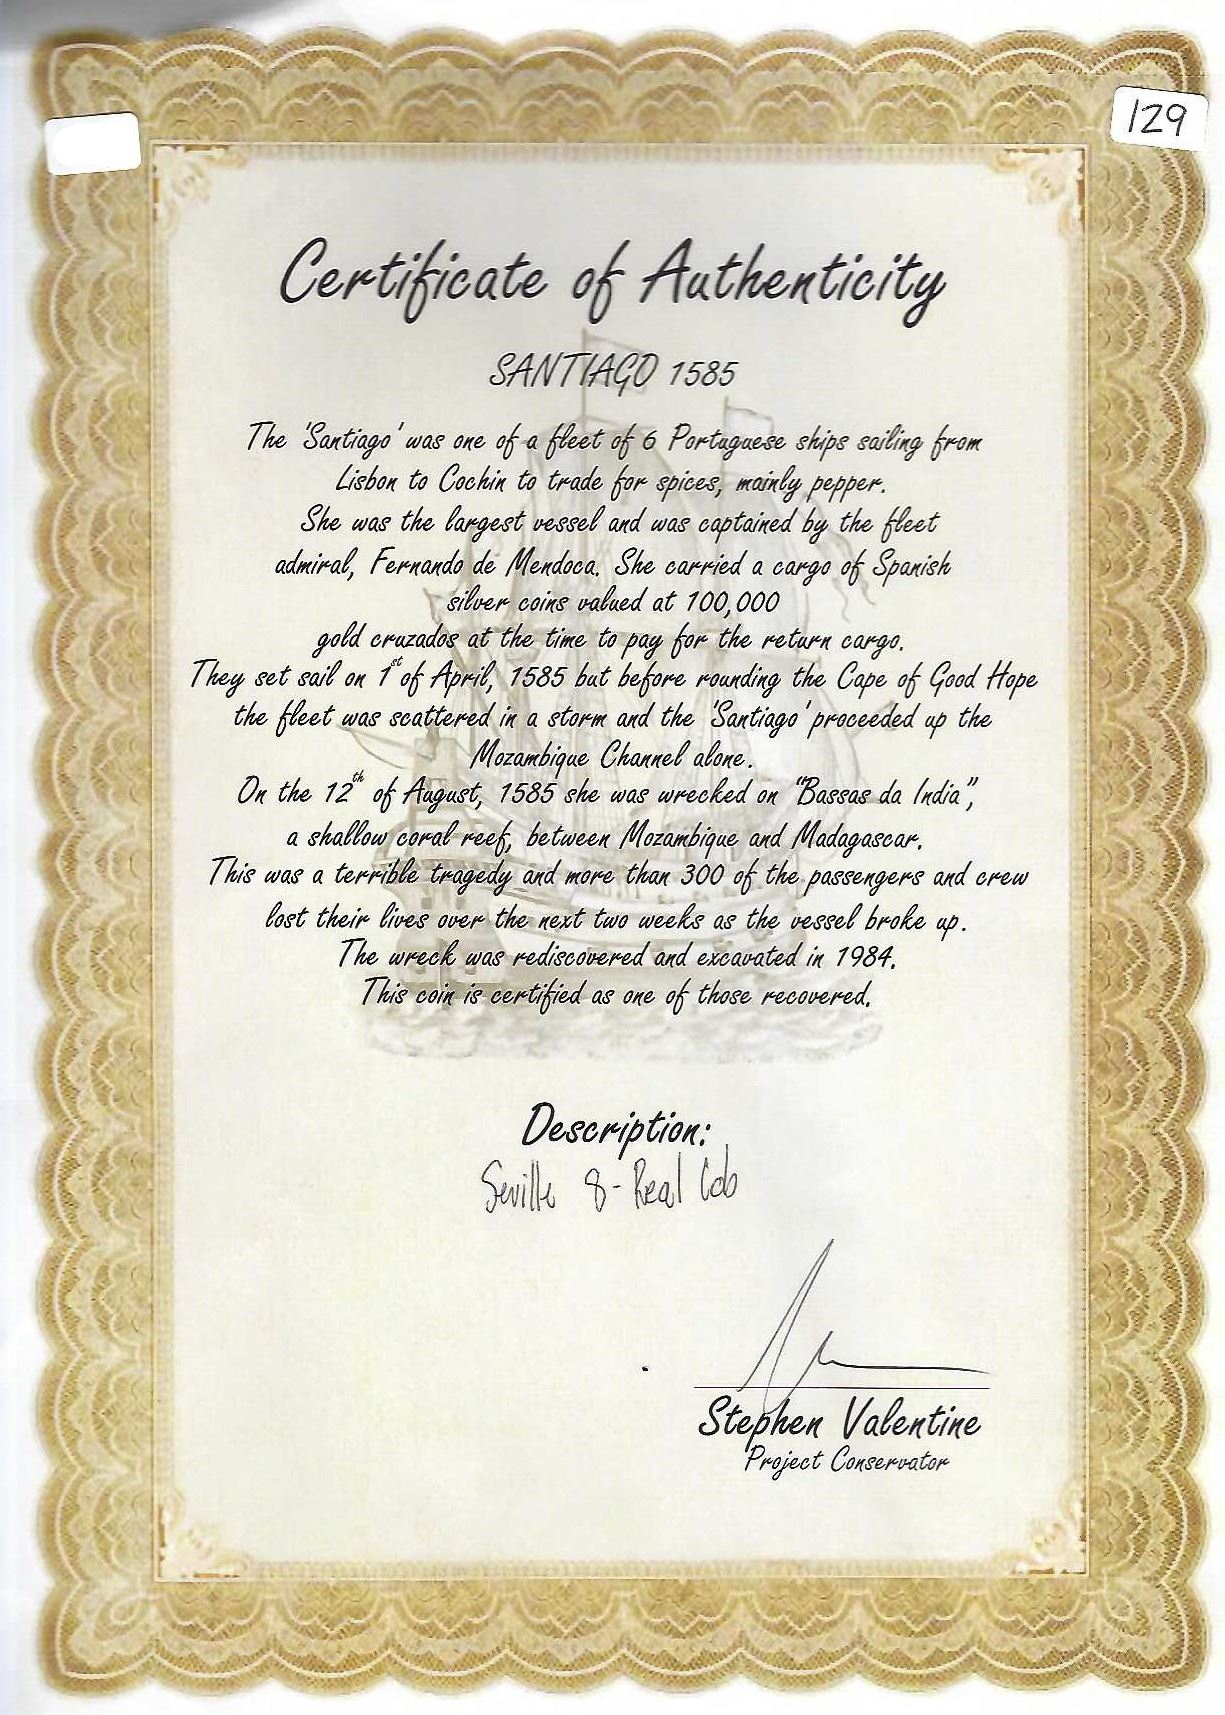 129
Certificate of Authenticity
SANTIAGO 1585
The 'Santiago' was one of a fleet of 6 Portuguese ships sailing from
Lisbon to Cochin to trade for spices, mainly pepper.
She was the largest vessel and was captained by the fleet
admiral, Fernando de Mendoca. She carried a cargo of Spanish
silver coins valued at 100,000
gold cruzados at the time to pay for the return cargo.
They set sail on 1st of April, 1585 but before rounding the Cape of Good Hope
the fleet was scattered in a storm and the 'Santiago' proceeded up the
Mozambique Channel alone.
On the 12th of August, 1585 she was wrecked on "Bassas da India",
a shallow coral reef, between Mozambique and Madagascar.
This was a terrible tragedy and more than 300 of the passengers and crew
lost their lives over the next two weeks as the vessel broke up.
The wreck was rediscovered and excavated in 1984.
This coin is certified as one of those recovered.
Description:
Seville 8-Real Cob
Stephen Valentine
Project Conservator